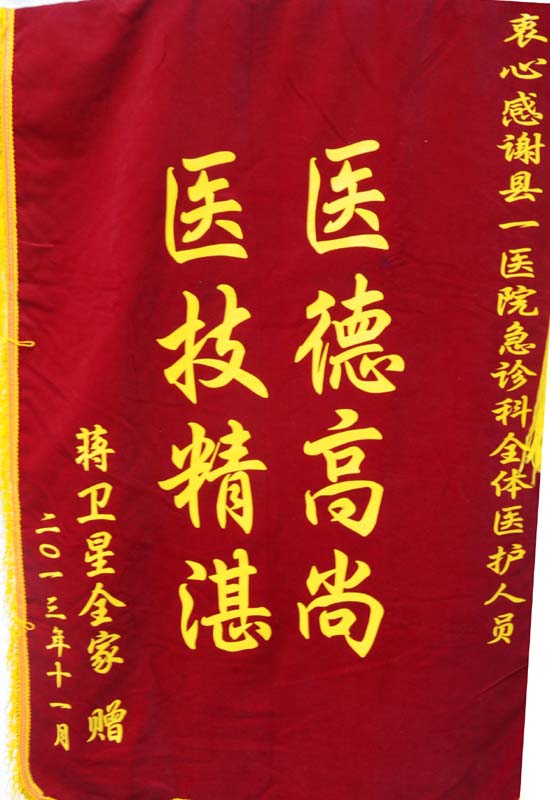 衷心感谢县一医院急诊科全体医护人员
医德高尚
医技精湛
蒋卫星全家 赠
二〇一三年十一月